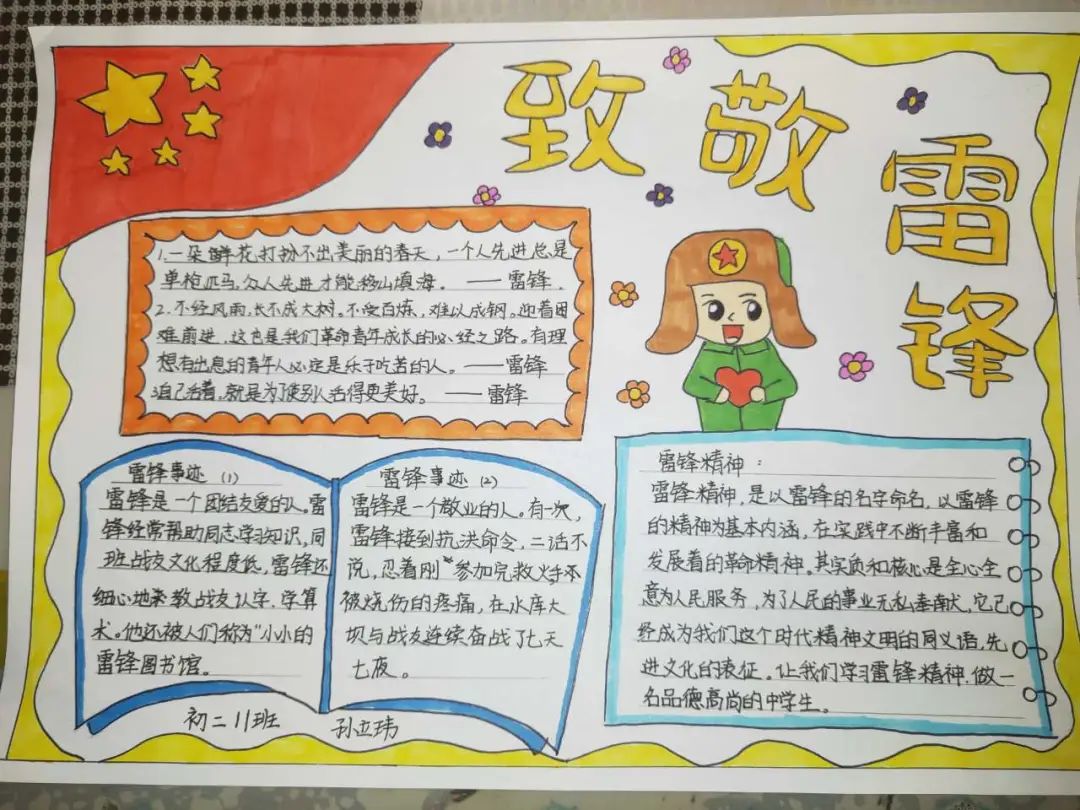 致敬雷锋
1.一朵鲜花打扮不出美丽的春天，一个人先进总是
单枪匹马，众人先进才能移山填海。——雷锋.
2.不经风雨，长不成大树，不受百炼，难以成钢。迎着困
难前进，这也是我们革命青年成长的必经之路。有理
想有出息的青年人必定是乐于吃苦的人。——雷锋
3.自己活着，就是为了使别人活得更美好。——雷锋
雷锋事迹（1）
雷锋是一个团结友爱的人。雷
锋经常帮助同志学习知识，同
班战友文化程度低，雷锋还
细心地来教战友认字，学算
术。他还被人们称为“小小的
雷锋图书馆。
雷锋事迹（2）
雷锋是一个敬业的人。有一次，
雷锋接到抗洪命令，二话不
说，忍着刚参加完救火手不
被烧伤的疼痛，在水库大
坝与战友连续奋战了七天
七夜。
雷锋精神：
雷锋精神，是以雷锋的名字命名，以雷锋
的精神为基本内涵，在实践中不断丰富和
发展着的革命精神。其实质和核心是全心全
意为人民服务，为了人民的事业无私奉献，它已
经成为我们这个时代精神文明的同义语，先
进文化的表征。让我们学习雷锋精神，做一
名品德高尚的中学生。
初二11班 孙立玮